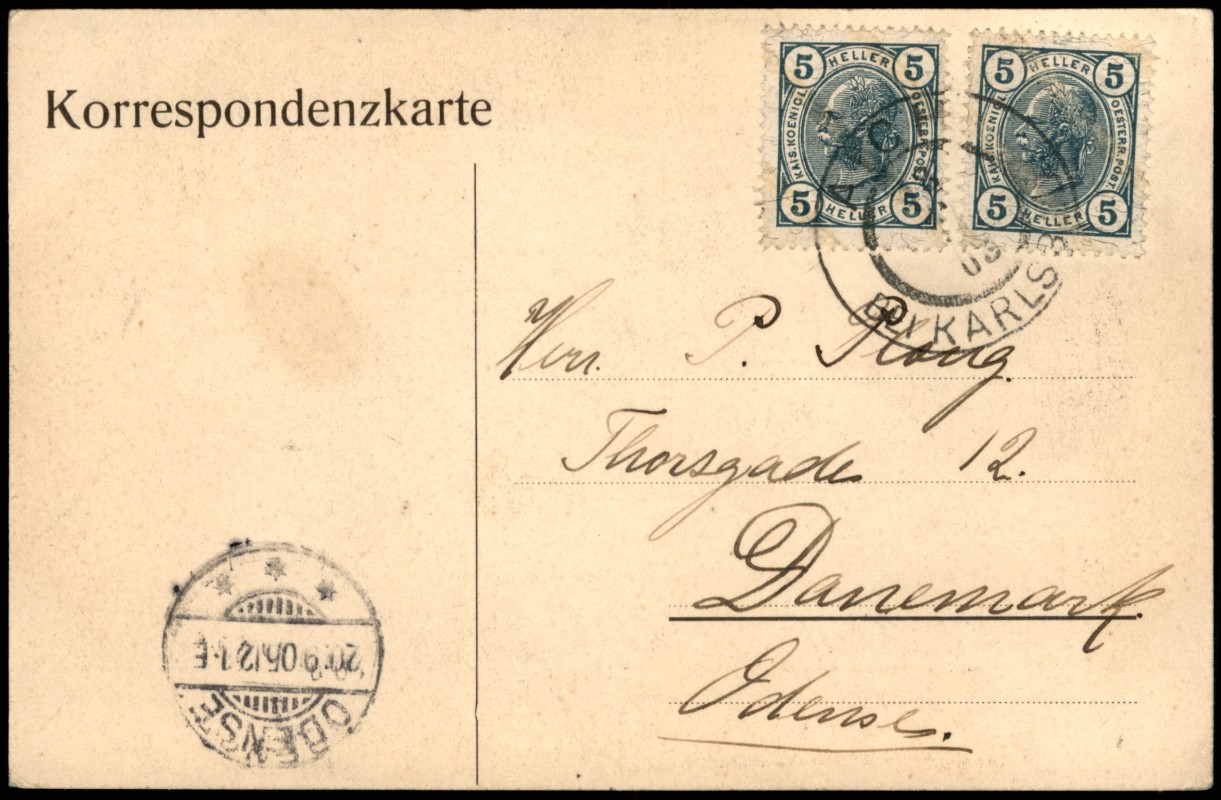 Korrespondenzkarte
5 HELLER 5
KAIS. KOENIGL. OESTERR. POST.
5 HELLER 5
5 HELLER 5
KAIS. KOENIGL. OESTERR. POST.
5 HELLER 5
KARLSB
Herr. P. Ploug.
Thorsgade 12.
Danemark.
Odense.
ODENSE